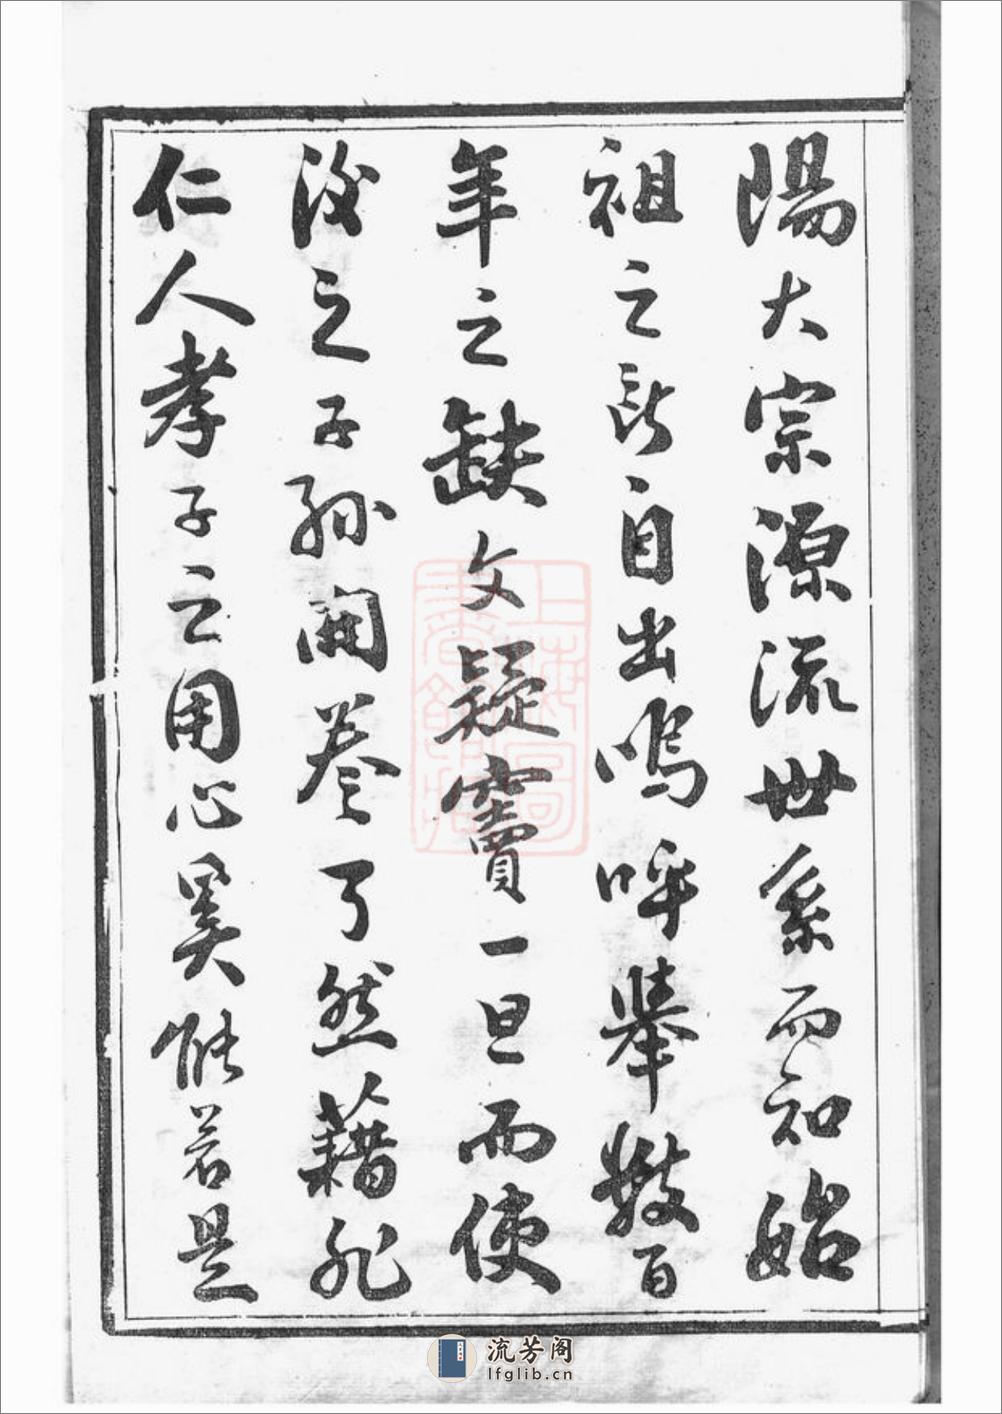 陽大宗源流世系而知始
祖之所自出嗚呼舉數百
年之缺文疑竇一旦而使
後之子孫開卷了然藉非
仁人孝子之用心奚能若是
上海圖書館藏
流芳阁
lfglib.cn